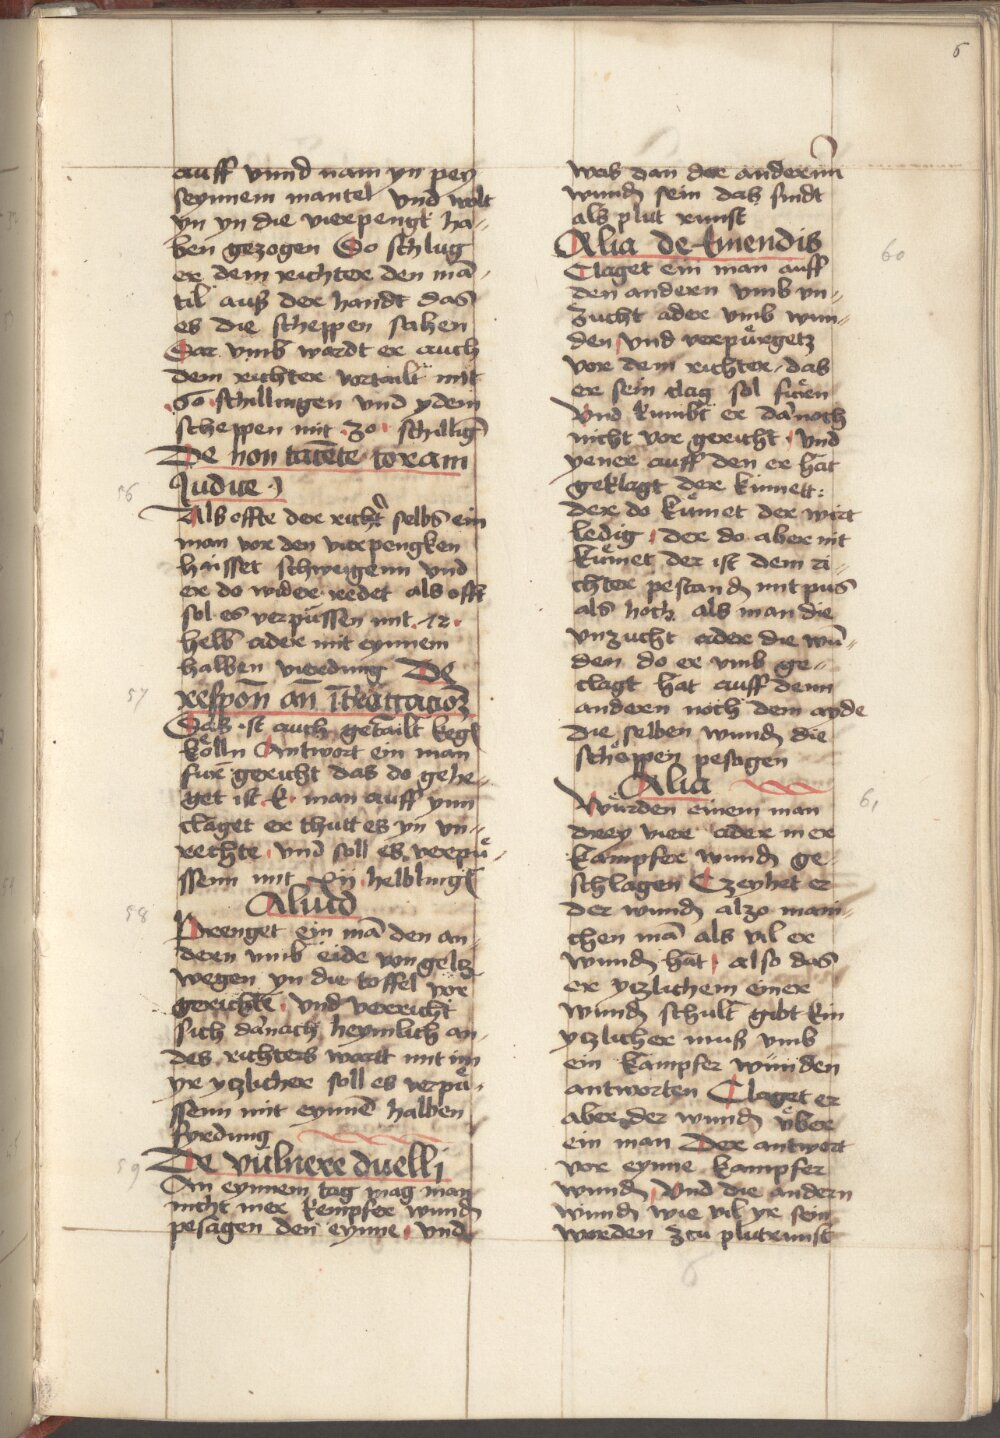 6
auff vnnd nam yn pey
seynnem mantel vnd wolt
yn yn die vierpengk ha-
ben gezogen So schlug
er dem richter den mā-
til auß der handt das
es die scheppen sahen
Dar vmb wardt er auch
dem richter vortailt mit
·60· schillingen vnd ydem
scheppen mit ·30· schilliḡ
De non tacēte coram
Judice
56
Als offte der richt̉ selbs ein
man vor den vierpengken
haisset schweigenn vnd
er do wider redet als offt
sol es verpüssen mit ·12·
helb̄ ader mit eynnem
halben vierdung De
57
respon̄ an̄
Das ist auch getailt keḡ
Kölln Antwort ein man
fur gericht das do gehe-
get ist E man auff ynn
claget er thutt es yn vn-
rechte vnd soll es verpü-
ssenn mit xij helbling
Aliud
58
Prenget ein mā den an-
dern vmb eide von geltz
wegen yn die toffel vor
gerichte vnd verricht
sich danach heymlich an
des richters wortt mit im
yr yczlicher soll es verpü-
ssenn mit eynnē halben
fyrdung
De vulnere duelli
59
An eynnem tag mag man
nicht mer kempfer wund̄
pesagen den eynne vnd
was dan der andernn
wund̄ sein das sindt
als plut runst
Alia de Emendis
60
Claget ein man auff
den andern vmb vn-
zucht ader vmb wun-
den vnd verpürgetz
vor dem richter das
er sein clag sol füren
Vnd kumbt er danoch
nicht vor gericht vnd
yener auff den er hat
geklagt der kümett:
der do kümet der wirt
ledig der do aber nit
kümet der ist dem ri-
chter pestand̄ mit pus
als hoch als man die
vnzucht ader die wū-
den do er vmb ge-
clagt hat auff denn
andern noch dem ayde
die selben wund̄ die
scheppen pesagen
Alia
61
Würden einem man
drey vier ader mer
kampfer wund̄ ge-
schlagen Czeyhet er
der wund̄ alzo mani-
chen mā als vil er
wund̄ hat also das
er yczlichem einer
wund̄ schult gibt Ein
yczlicher muß vmb
ein kampfer wunden
antworten Claget er
aber der wund̄ über
ein man Der antwort
vor eynne kampfer
wund̄ Vnd die andern
wund̄ wie vil yr sein
worden zcu plutrunst